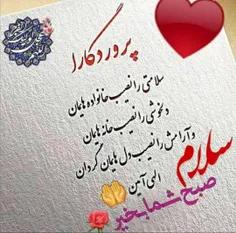 پروردگارا
سلامتی را نصیب خانواده هایمان
دلخوشی را نصیب خانه هایمان
و آرامش را نصیب دل هایمان گردان
الهی آمین
سلام
صبح شما بخیر